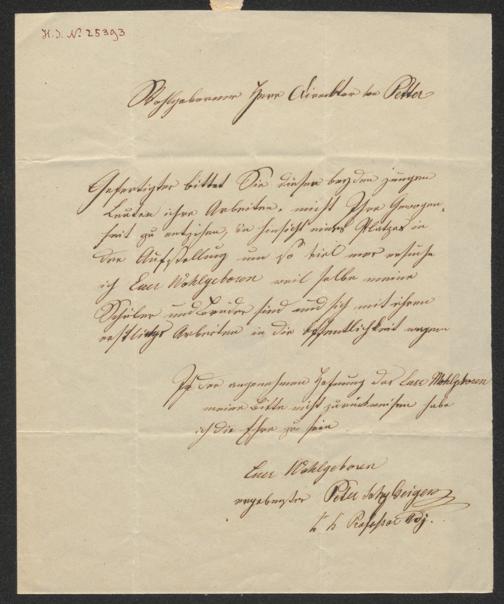 H.I.N. 25393
Wohlgeborner Herr Direcktor von Petter
Gefertigter bittet Sie dieser beyden jungen
Leuten ihre Arbeiten, nicht Ihre Gewogen-
heit zu entziehen, in hinsicht eines Platzes in
der Aufstellung um so viel mer ersuche
ich Euer Wohlgeboren weil selbe meine
Schüler und Brüder sind und sich mit ihren
Arbeiten in die öffentlichkeit wagen
In der angenehmen Hofnung das Euer Wohlgeboren
meine Bitte nicht zurückweisen habe
ich die Ehre zu sein
Euer Wohlgeboren
ergebenster Peter Joh. Geiger
k k Professor